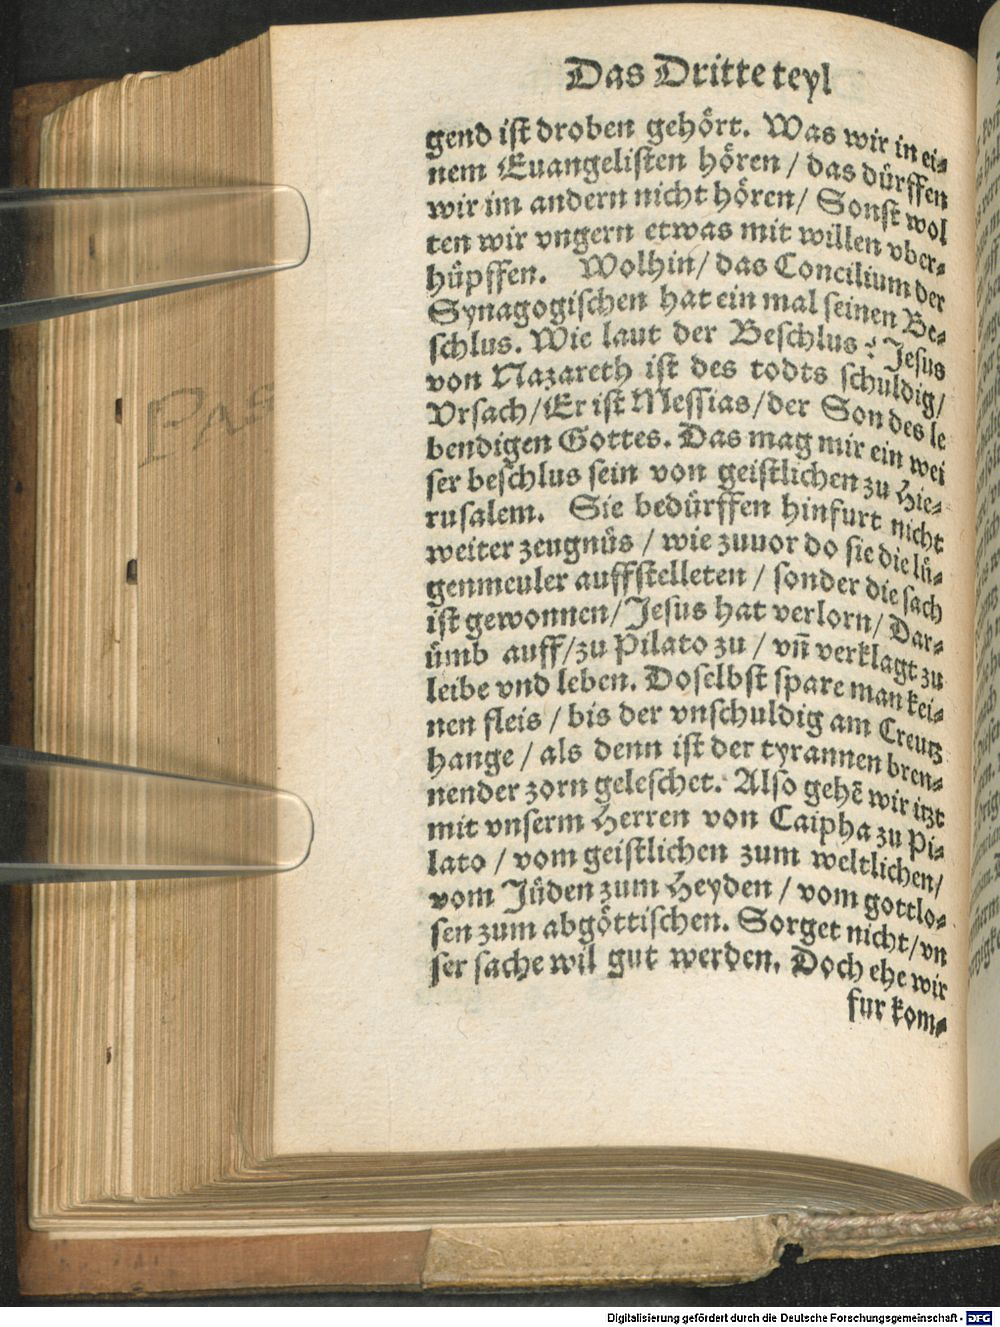 Das Dritte teyl
gend ist droben gehört. Was wir in ei⸗
nem Euangelisten hören / das dürffen
wir im andern nicht hören / Sonst wol
ten wir vngern etwas mit willen vber⸗
hüpffen. Wolhin / das Concilium der
Synagogischen hat ein mal seinen Be⸗
schlus. Wie laut der Beschlus? Jesus
von Nazareth ist des todts schuldig /
Vrsach / Er ist Messias / der Son des le
bendigen Gottes. Das mag mir ein wei
ser beschlus sein von geistlichen zu Hie⸗
rusalem. Sie bedürffen hinfurt nicht
weiter zeugnüs / wie zuuor do sie die lü⸗
genmeuler auffstelleten / sonder die sach
ist gewonnen / Jesus hat verlorn / Dar⸗
ümb auff / zu Pilato zu / vñ verklagt zu
leibe vnd leben. Doselbst spare man kei⸗
nen fleis / bis der vnschuldig am Creutz
hange / als denn ist der tyrannen bren⸗
nender zorn geleschet. Also gehẽ wir itzt
mit vnserm Herren von Caipha zu Pi⸗
lato / vom geistlichen zum weltlichen /
vom Jüden zum Heyden / vom gottlo⸗
sen zum abgöttischen. Sorget nicht / vn
ser sache wil gut werden. Doch ehe wir
fur kom⸗
PAS
Digitalisierung gefördert durch die Deutsche Forschungsgemeinschaft - DFG